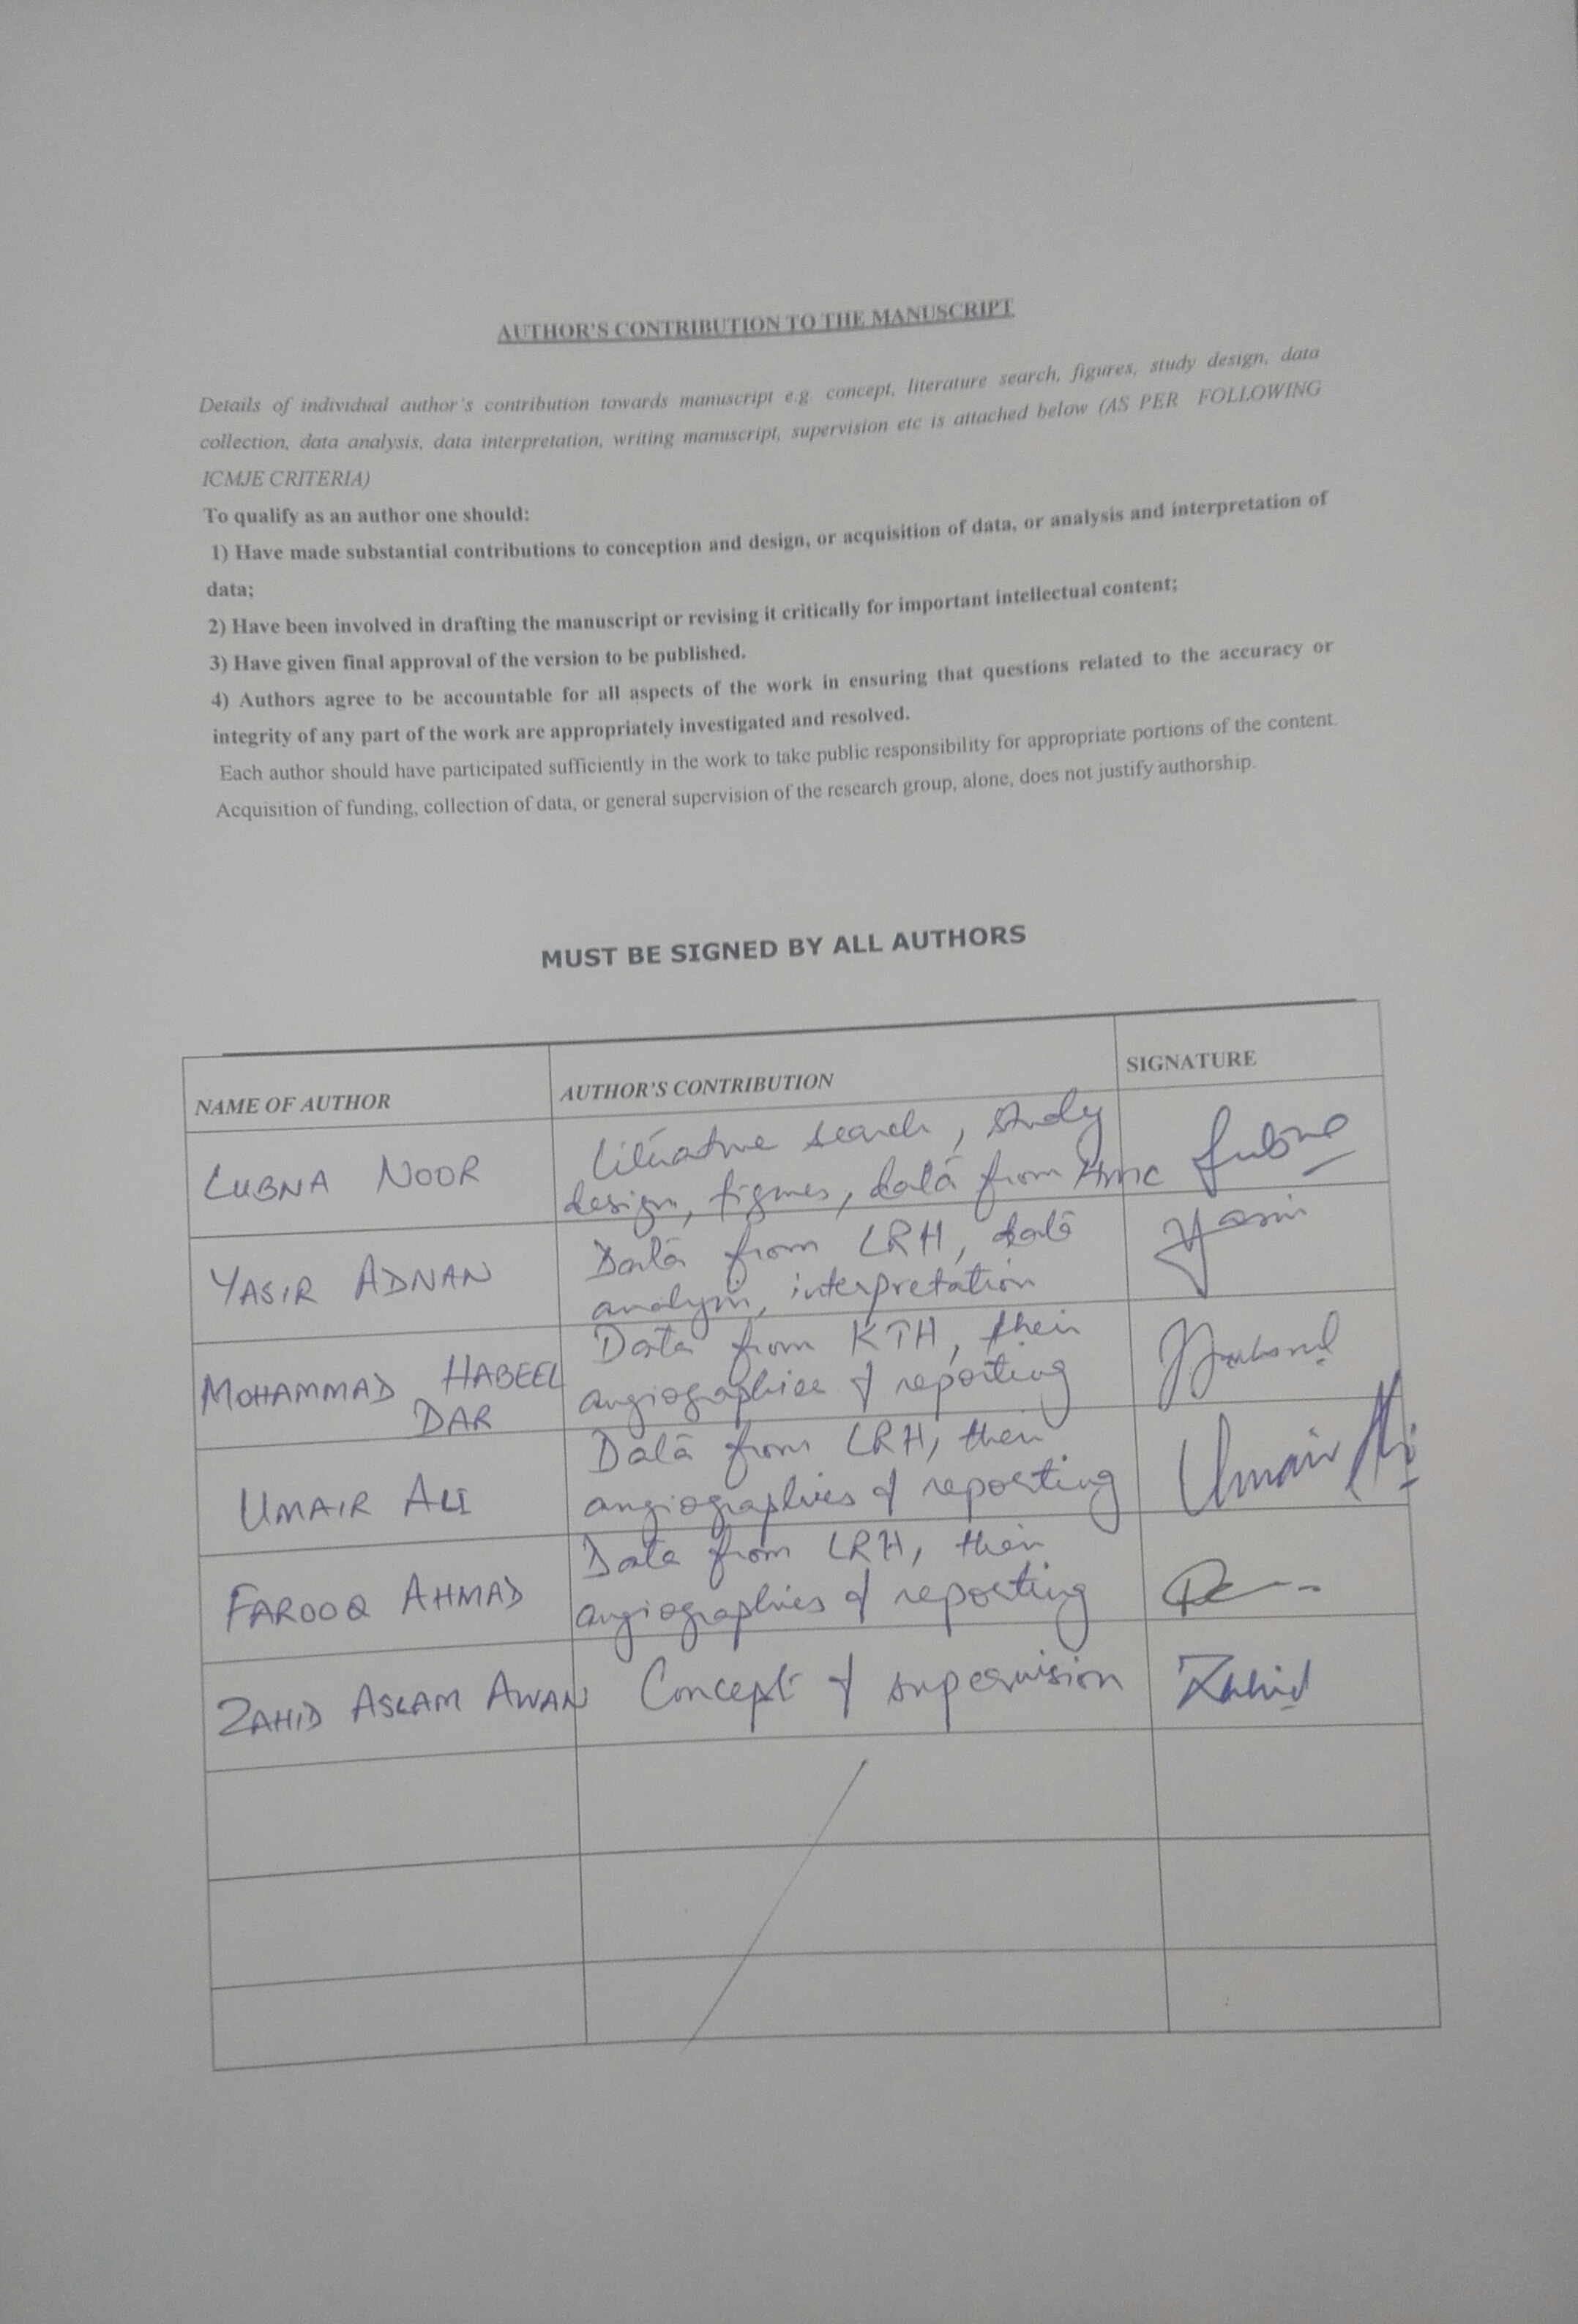 AUTHOR'S CONTRIBUTION TO THE MANUSCRIPT
Details of individual author's contribution towards manuscript e.g. concept, literature search, figures, study design, data
collection, data analysis, data interpretation, writing manuscript, supervision etc is attached below (AS PER FOLLOWING
ICMJE CRITERIA)
To qualify as an author one should:
1) Have made substantial contributions to conception and design, or acquisition of data, or analysis and interpretation of
data;
2) Have been involved in drafting the manuscript or revising it critically for important intellectual content;
3) Have given final approval of the version to be published.
4) Authors agree to be accountable for all aspects of the work in ensuring that questions related to the accuracy or
integrity of any part of the work are appropriately investigated and resolved.
Each author should have participated sufficiently in the work to take public responsibility for appropriate portions of the content.
Acquisition of funding, collection of data, or general supervision of the research group, alone, does not justify authorship.
MUST BE SIGNED BY ALL AUTHORS
NAME OF AUTHOR AUTHOR'S CONTRIBUTION SIGNATURE
LUBNA NOOR
Literature search, study
design, figures, data from HMC
Lubna
YASIR ADNAN
Data from LRH, data
analysis, interpretation
Yasir
MOHAMMAD HABEEL
DAR
Data from KTH, their
angiographies & reporting
UMAIR ALI
Data from LRH, their
angiographies & reporting
Umair Ali
FAROOQ AHMAD
Data from LRH, their
angiographies & reporting
ZAHID ASLAM AWAN
Concept & supervision
Zahid